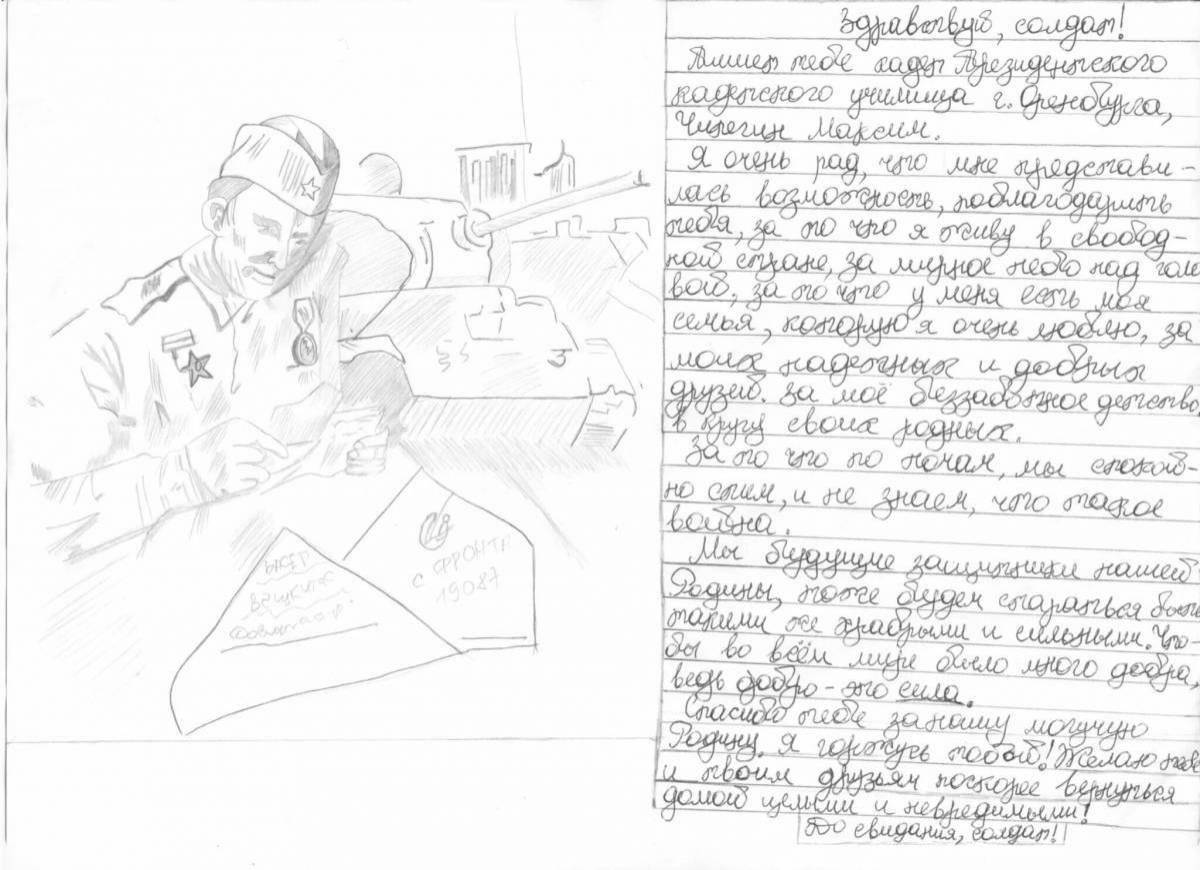 с фронта
19087
Здравствуй, солдат!
Пишет тебе кадет Президентского
кадетского училища г. Оренбурга,
Чирегин Максим.
Я очень рад, что мне представи-
лась возможность, поблагодарить
тебя, за то что я живу в свобод-
ной стране, за мирное небо над голо
вой, за то что у меня есть моя
семья, которую я очень люблю, за
моих надежных и добрых
друзей. За моё беззаботное детство,
в кругу своих родных.
За то что по ночам, мы спокой-
но спим, и не знаем, что такое
война.
Мы будущие защитники нашей
Родины, тоже будем стараться быть
такими же храбрыми и сильными. Что-
бы во всём мире было много добра,
ведь добро - это сила.
Спасибо тебе за нашу могучую
Родину. Я горжусь тобой! Желаю тебе
и твоим друзьям поскорее вернуться
домой целыми и невредимыми!
До свидания, солдат!